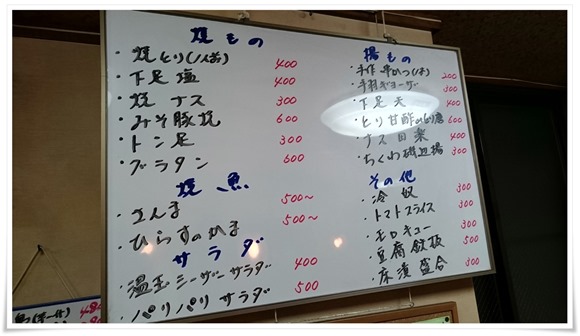 焼もの
・焼とり(1人前) 400
・下足塩 400
・焼ナス 300
・みそ豚焼 600
・トン足 300
・グラタン 600
焼魚
・さんま 500〜
・ひらすのかま 500〜
サラダ
・温玉シーザーサラダ 400
・パリパリサラダ 500
揚もの
・手作串かつ(1本) 200
・手羽ギョーザ 500
・下足天 400
・とり甘酢 600
・ナス田楽 400
・ちくわ磯辺揚 300
その他
・冷奴 300
・トマトスライス 300
・モロキュー 300
・豆腐鉄板 500
・床漬盛合 300